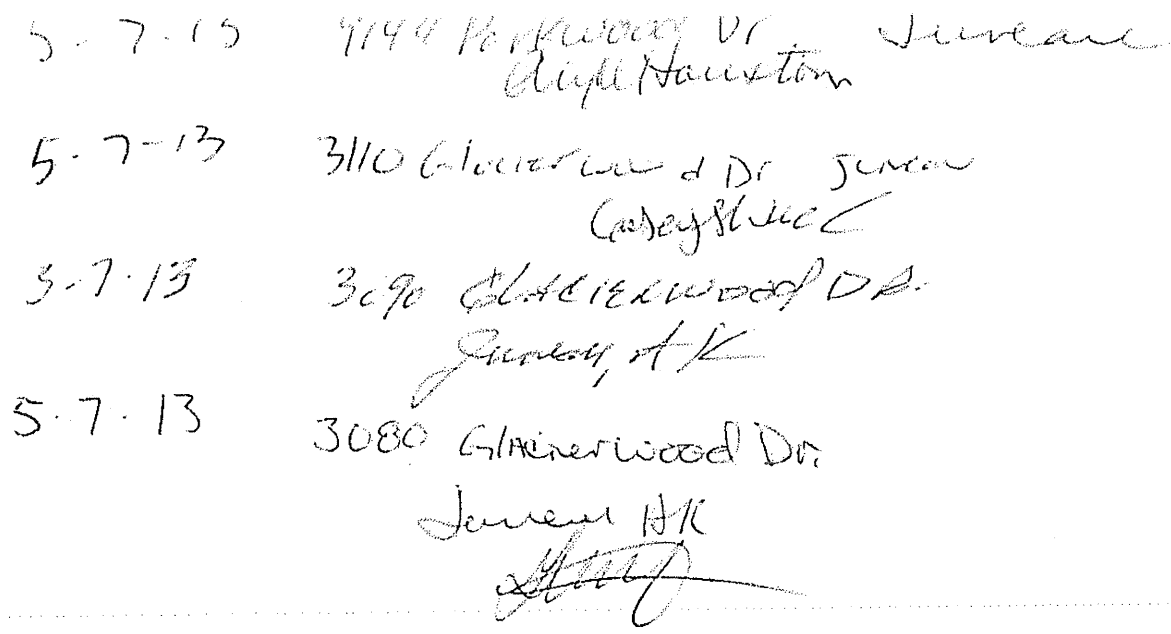 5-7-13 9144 Parkwood Dr Juneau
Houston
5-7-13 3110 Glacierwood Dr Juneau
Casey
5-7-13 3090 GLACIERWOOD DR.
Juneau, AK
5-7-13 3080 Glacierwood Dr.
Juneau AK